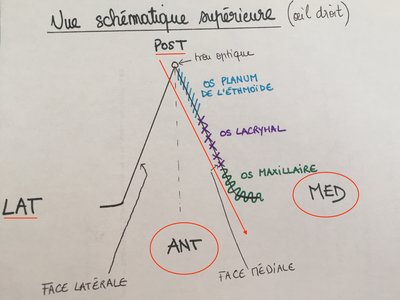 Vue schématique supérieure (œil droit)
POST
trou optique
OS PLANUM
DE L'ÉTHMOÏDE
OS LACRYMAL
OS MAXILLAIRE
LAT
MED
ANT
FACE LATÉRALE
FACE MÉDIALE